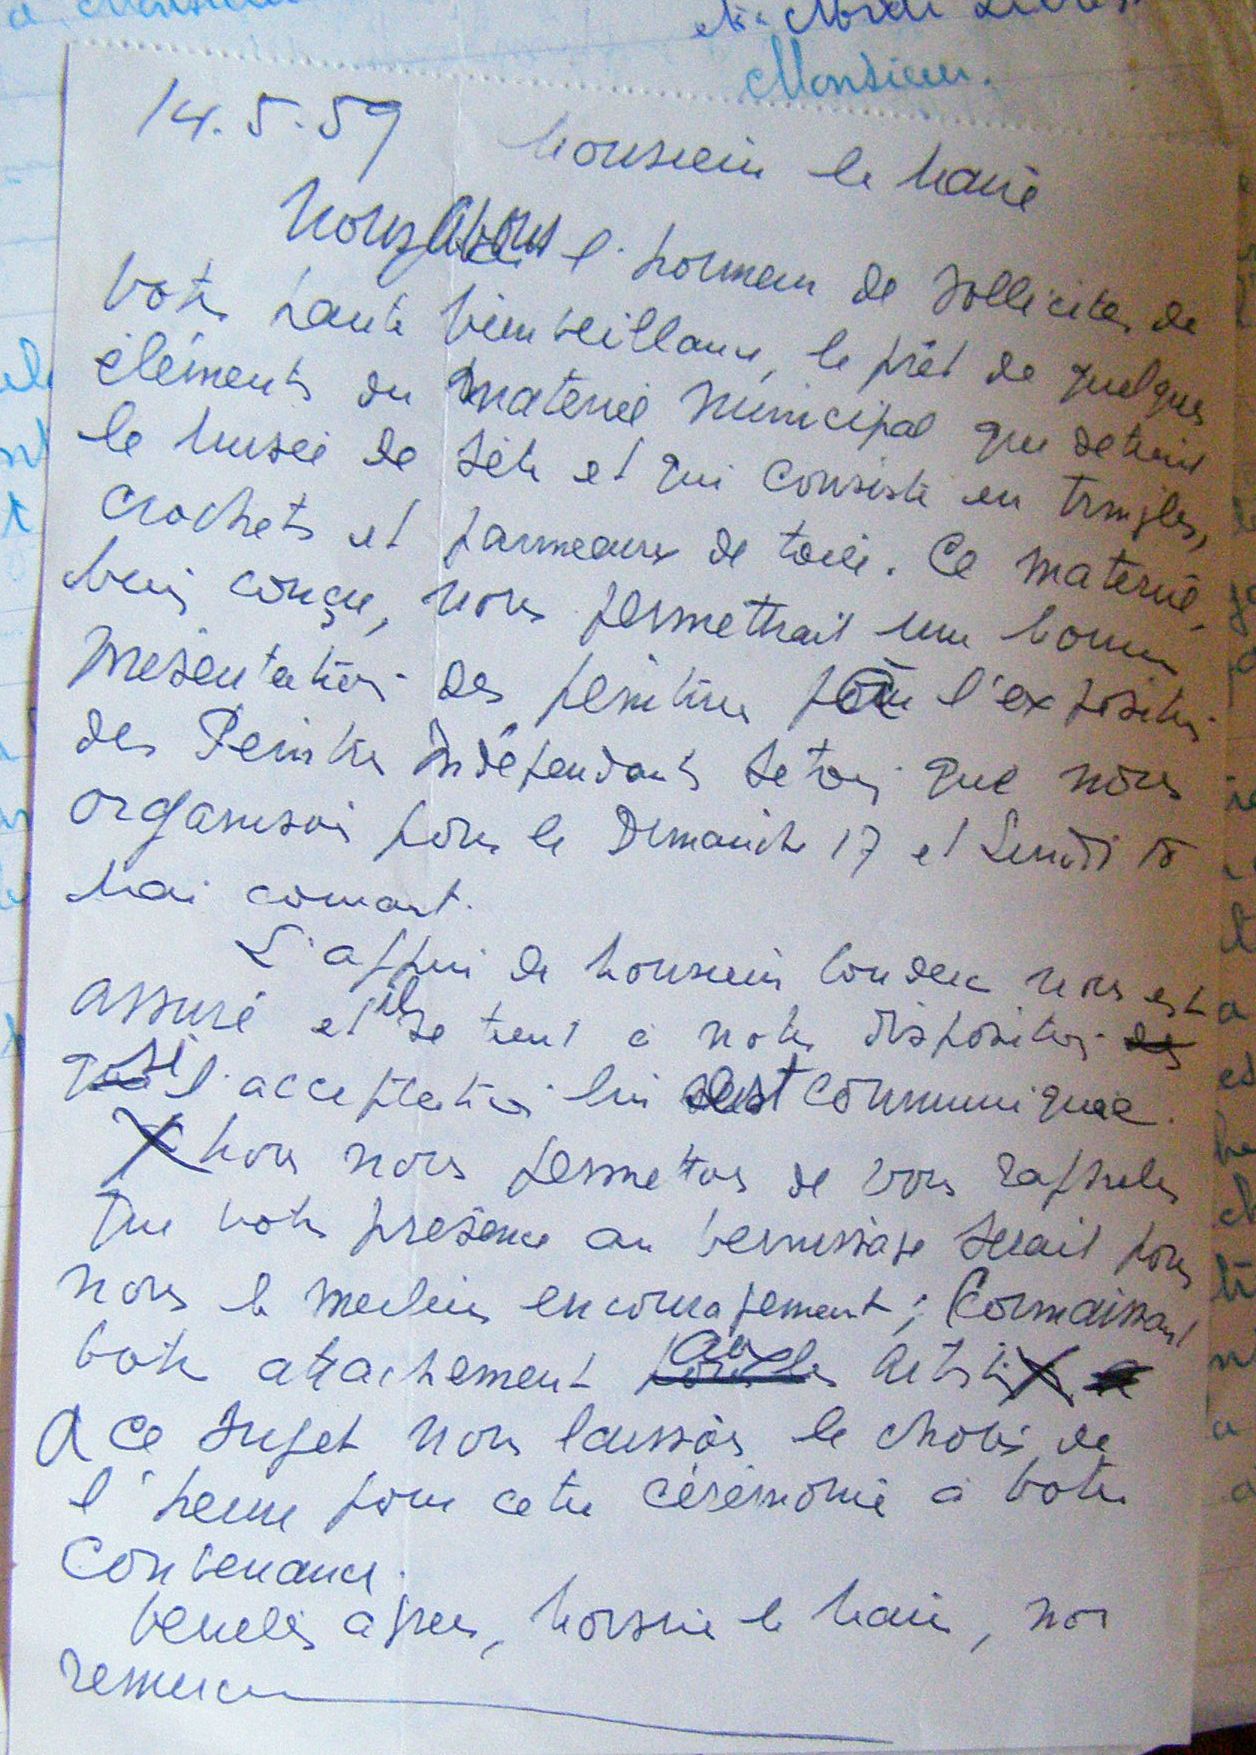 Monsieur.
14.5.59
Monsieur le Maire
Nous avons l'honneur de solliciter de
votre haute bienveillance, le prêt de quelques
éléments du matériel municipal que detient
le Musée de Sète et qui consiste en tringles,
crochets et panneaux de toile. Ce matériel,
bien conçu, nous permettrait une bonne
présentation des peintures pour l'exposition
des Peintres Indépendants Setois que nous
organisons pour le Dimanche 17 et Lundi 18
Mai courant.
L'appui de Monsieur nous est
assuré et il se tient à notre disposition des
que si l'acceptation lui est communiquée.
Nous nous permettons de vous rappeler
que votre présence au vernissage serait pour
nous le meilleur encouragement; Connaissant
votre attachement pour les aux Artistes
A ce sujet nous laissons le choix de
l'heure pour cette cérémonie à votre
convenance.
Veuillez agréer, Monsieur le Maire, nos
remerciem